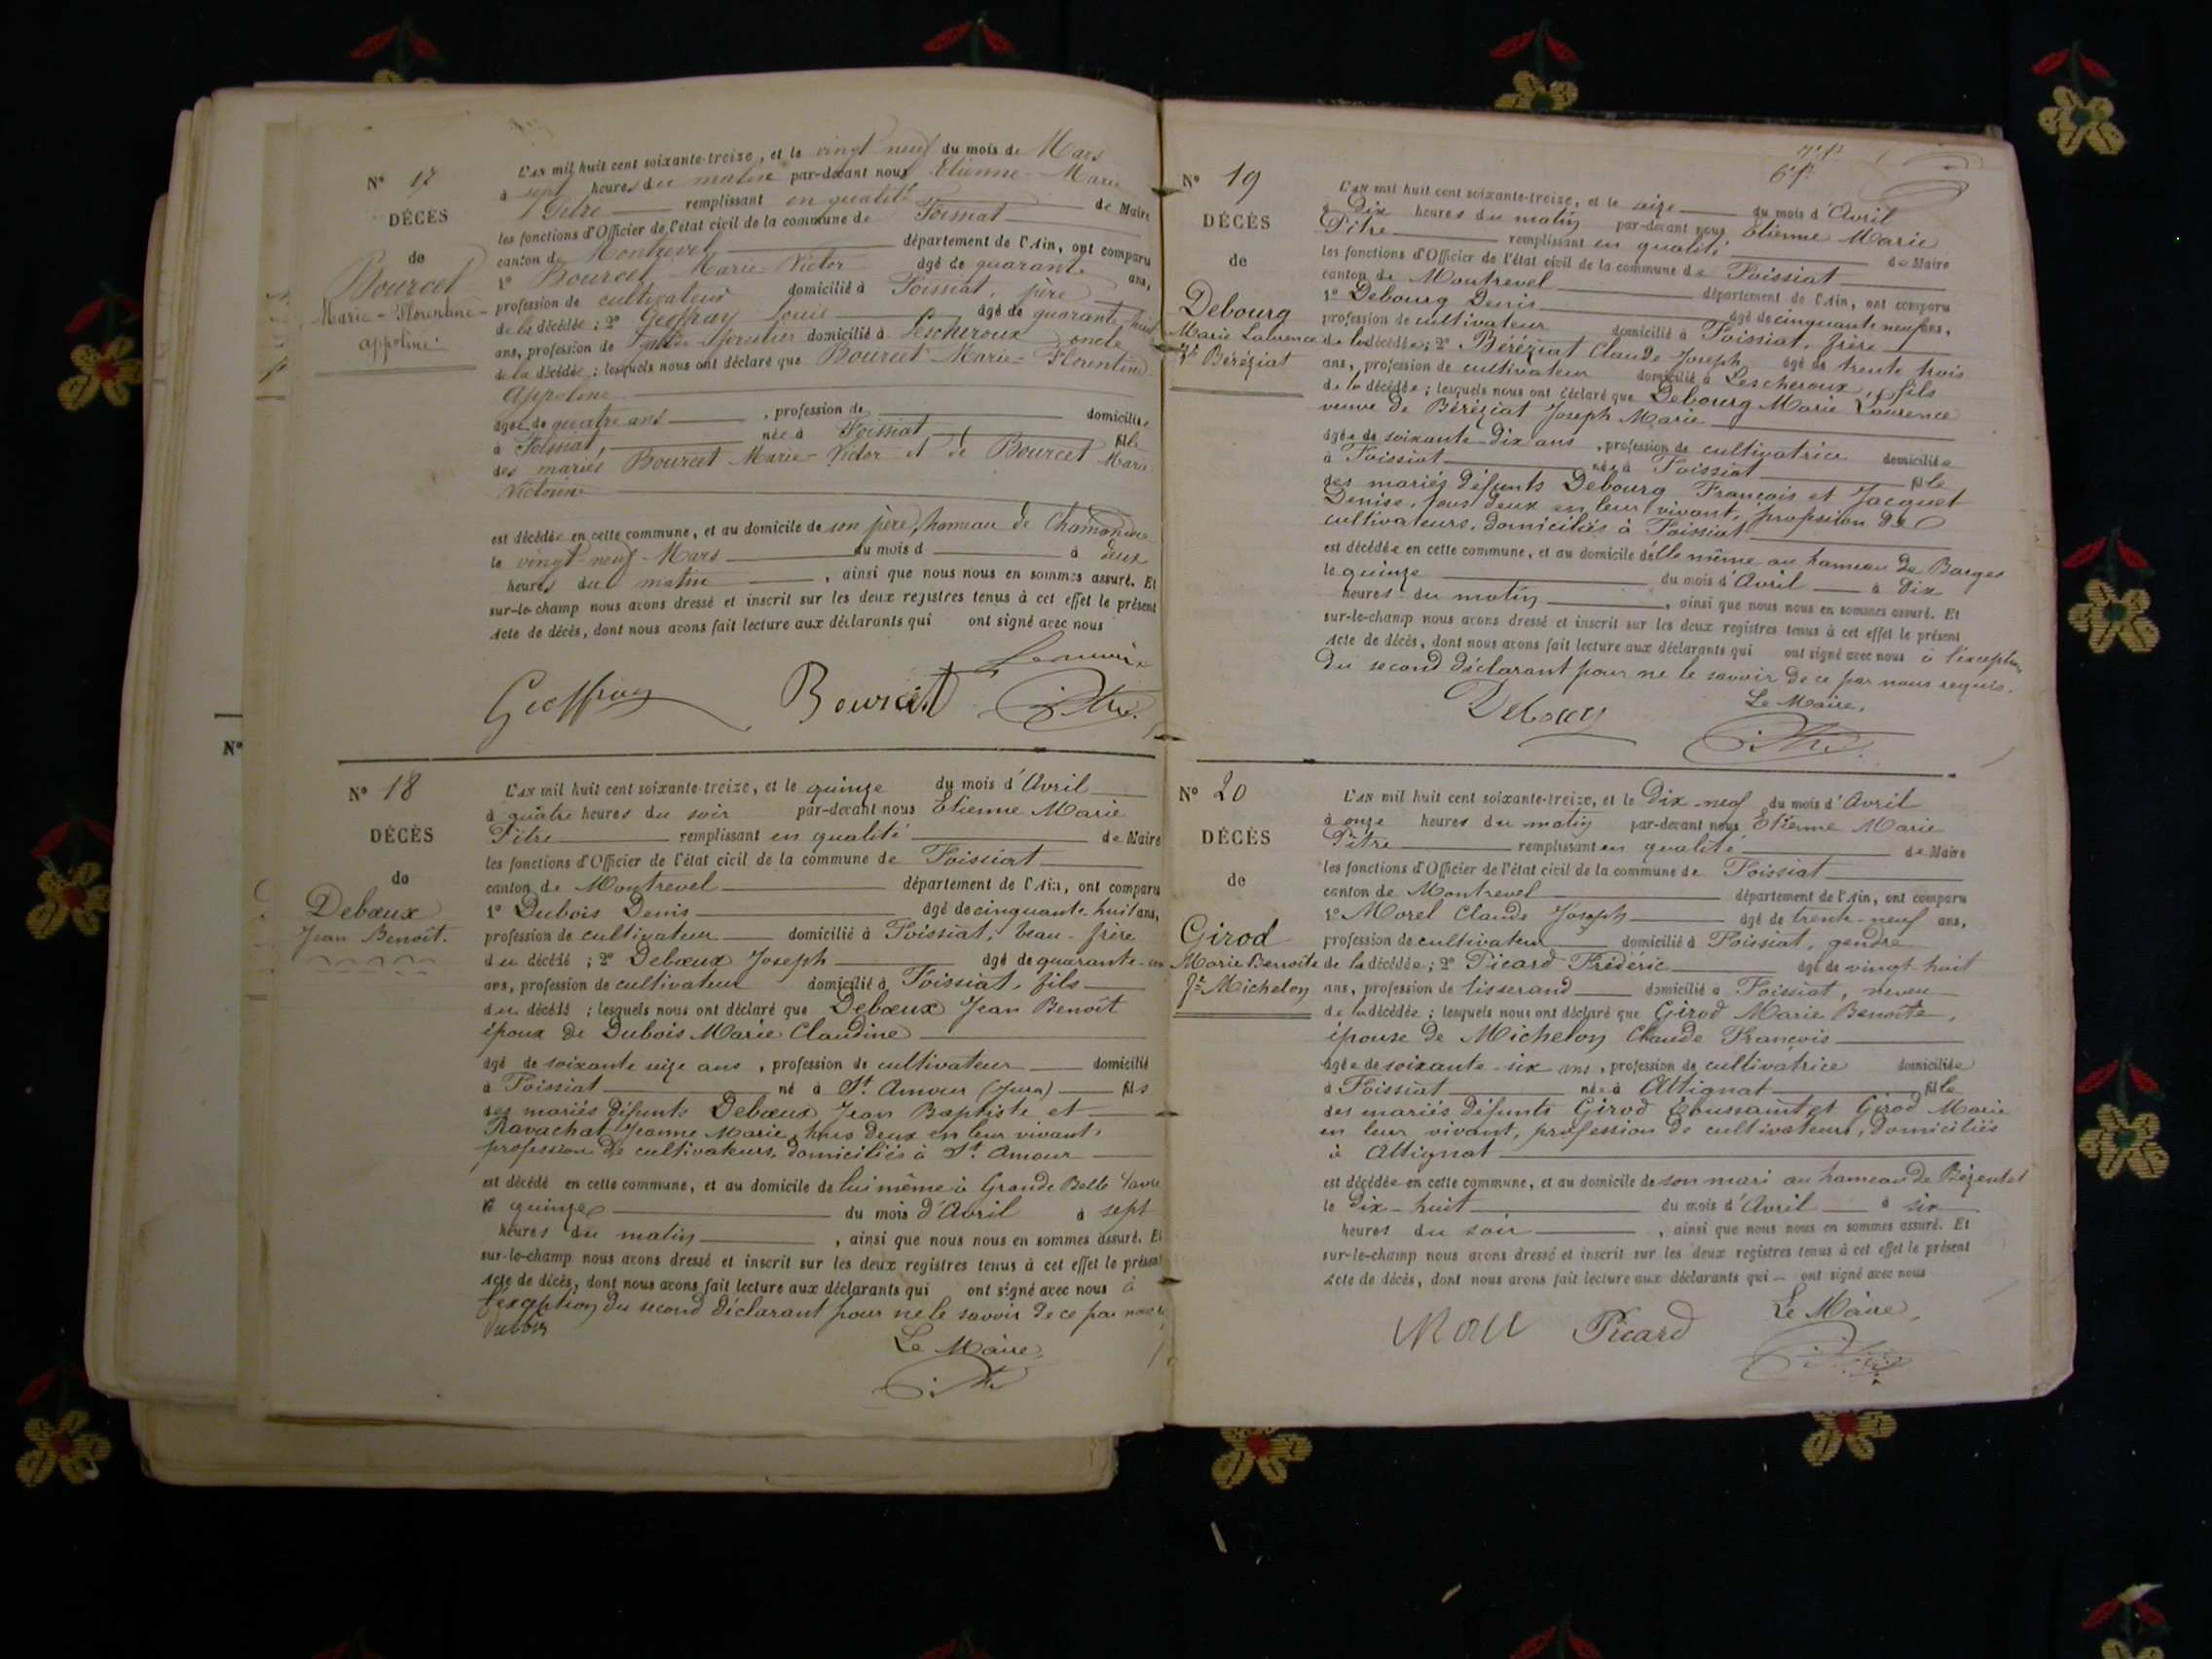 N° 17
DÉCÈS
de
Bourcet
Marie-Florentine-
appoline
L'AN mil huit cent soixante-treize, et le vingt neuf du mois de Mars
à sept heures du matin par-devant nous Etienne-Marie
Pitre remplissant en qualité de Maire
les fonctions d'Officier de l'état civil de la commune de Foissiat
canton de Montrevel département de l'Ain, ont comparu
1° Bourcet Marie-Victor âgé de quarante ans,
profession de cultivateur domicilié à Foissiat, père
de la décédée ; 2° Geoffray Louis âgé de quarante huit
ans, profession de garde forestier domicilié à Lescheroux oncle
de la décédée ; lesquels nous ont déclaré que Bourcet-Marie-Florentine
Appoline
âgée de quatre ans , profession de domiciliée
à Foissiat, née à Foissiat fille
des mariés Bourcet Marie-Victor et de Bourcet Marie
Victorine
est décédée en cette commune, et au domicile de son père, hameau de
le vingt-neuf Mars du mois d à deux
heures du matin , ainsi que nous nous en sommes assuré. Et
sur-le-champ nous avons dressé et inscrit sur les deux registres tenus à cet effet le présent
acte de décès, dont nous avons fait lecture aux déclarants qui ont signé avec nous
Geoffray Bourcet Pitre
N° 18
DÉCÈS
de
Debœux
Jean Benoît.
L'AN mil huit cent soixante-treize, et le quinze du mois d'Avril
à quatre heures du soir par-devant nous Etienne Marie
Pitre remplissant en qualité de Maire
les fonctions d'Officier de l'état civil de la commune de Foissiat
canton de Montrevel département de l'Ain, ont comparu
1° Dubois Denis âgé de cinquante-huit ans,
profession de cultivateur domicilié à Foissiat, beau-frère
du décédé ; 2° Debœux Joseph âgé de quarante-un
ans, profession de cultivateur domicilié à Foissiat, fils
du décédé ; lesquels nous ont déclaré que Debœux Jean Benoît
époux de Dubois Marie Claudine
âgé de soixante seize ans , profession de cultivateur domicilié
à Foissiat né à St. Amour (Jura) fils
des mariés défunts Debœux Jean Baptiste et
Ravachat Jeanne Marie, tous deux en leur vivant,
profession de cultivateurs, domiciliés à St. Amour
est décédé en cette commune, et au domicile de lui même à Grande Belle
le quinze du mois d'Avril à sept
heures du matin , ainsi que nous nous en sommes assuré. Et
sur-le-champ nous avons dressé et inscrit sur les deux registres tenus à cet effet le présent
acte de décès, dont nous avons fait lecture aux déclarants qui ont signé avec nous à
l'exception du second déclarant pour ne le savoir de ce par nous
Dubois
Le Maire,
Pitre
N° 19
DÉCÈS
de
Debourg
Marie Laurence
Ve Béréziat
6e f.
L'AN mil huit cent soixante-treize, et le seize du mois d'Avril
à Dix heures du matin par-devant nous Etienne Marie
Pitre remplissant en qualité de Maire
les fonctions d'Officier de l'état civil de la commune de Foissiat
canton de Montrevel département de l'Ain, ont comparu
1° Debourg Denis âgé de cinquante neuf ans,
profession de cultivateur domicilié à Foissiat, frère
de la décédée ; 2° Béréziat Claude Joseph âgé de trente trois
ans, profession de cultivateur domicilié à Lescheroux, fils
de la décédée ; lesquels nous ont déclaré que Debourg Marie Laurence
veuve de Béréziat Joseph Marie
âgée de soixante-Dix ans , profession de cultivatrice domiciliée
à Foissiat née à Foissiat fille
des mariés défunts Debourg François et Jacquet
Denise, tous deux en leur vivant, profession de
cultivateurs, domiciliés à Foissiat
est décédée en cette commune, et au domicile d'elle même au hameau de Barges
le quinze du mois d'Avril à Dix
heures du matin , ainsi que nous nous en sommes assuré. Et
sur-le-champ nous avons dressé et inscrit sur les deux registres tenus à cet effet le présent
acte de décès, dont nous avons fait lecture aux déclarants qui ont signé avec nous à l'exception
du second déclarant pour ne le savoir de ce par nous requis.
Le Maire,
Debourg Pitre
N° 20
DÉCÈS
de
Girod
Marie Benoîte
fe Michelon
L'AN mil huit cent soixante-treize, et le Dix-neuf du mois d'Avril
à onze heures du matin par-devant nous Etienne Marie
Pitre remplissant en qualité de Maire
les fonctions d'Officier de l'état civil de la commune de Foissiat
canton de Montrevel département de l'Ain, ont comparu
1° Morel Claude Joseph âgé de trente-neuf ans,
profession de cultivateur domicilié à Foissiat, gendre
de la décédée ; 2° Picard Frédéric âgé de vingt huit
ans, profession de tisserand domicilié à Foissiat, neveu
de la décédée ; lesquels nous ont déclaré que Girod Marie Benoîte,
épouse de Michelon Claude François
âgée de soixante-six ans , profession de cultivatrice domiciliée
à Foissiat née à Attignat fille
des mariés défunts Girod Toussaint et Girod Marie
en leur vivant, profession de cultivateurs, domiciliés
à Attignat
est décédée en cette commune, et au domicile de son mari au hameau de Bézentet
le Dix-huit du mois d'Avril à six
heures du soir , ainsi que nous nous en sommes assuré. Et
sur-le-champ nous avons dressé et inscrit sur les deux registres tenus à cet effet le présent
acte de décès, dont nous avons fait lecture aux déclarants qui ont signé avec nous
Le Maire,
Morel Picard Pitre
N°